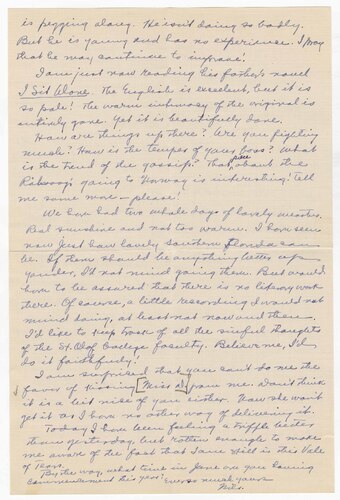 is pegging along. He isn't doing so badly.
But he is young and has no experience. I pray
that he may continue to improve!
I am just now reading his father's novel
I Sit Alone. The English is excellent, but it is
so pale! The warm intimacy of the original is
entirely gone. Yet it is beautifully done.
How are things up there? Are you fighting
much? How is the temper of your boss? What
is the trend of the gossip? That piece about the
going to Norway is interesting! Tell
me some more — please!
We have had two whole days of lovely weather.
Real sunshine and not too warm. I have seen
now just how lovely southern Florida can
be. If there should be anything better up
yonder, I'd not mind going there. But would
have to be assured that there is no literary work
there. Of course, a little recording I would not
mind doing, at least not now and then.
I'd like to keep track of all the sinful thoughts
of the St. Olaf College faculty. Believe me, I'd
do it faithfully!
I am surprised that you can't do me the
favor of kissing Miss N. from me. I don't think
it is a bit nice of you either. Now she won't
get it as I have no other way of delivering it.
Today I have been feeling a trifle better
than yesterday, but rotten enough to make
me aware of the fact that I am still in this Vale
of Tears.
By the way, what time in June are you having
commencement this year? Ever so much yours